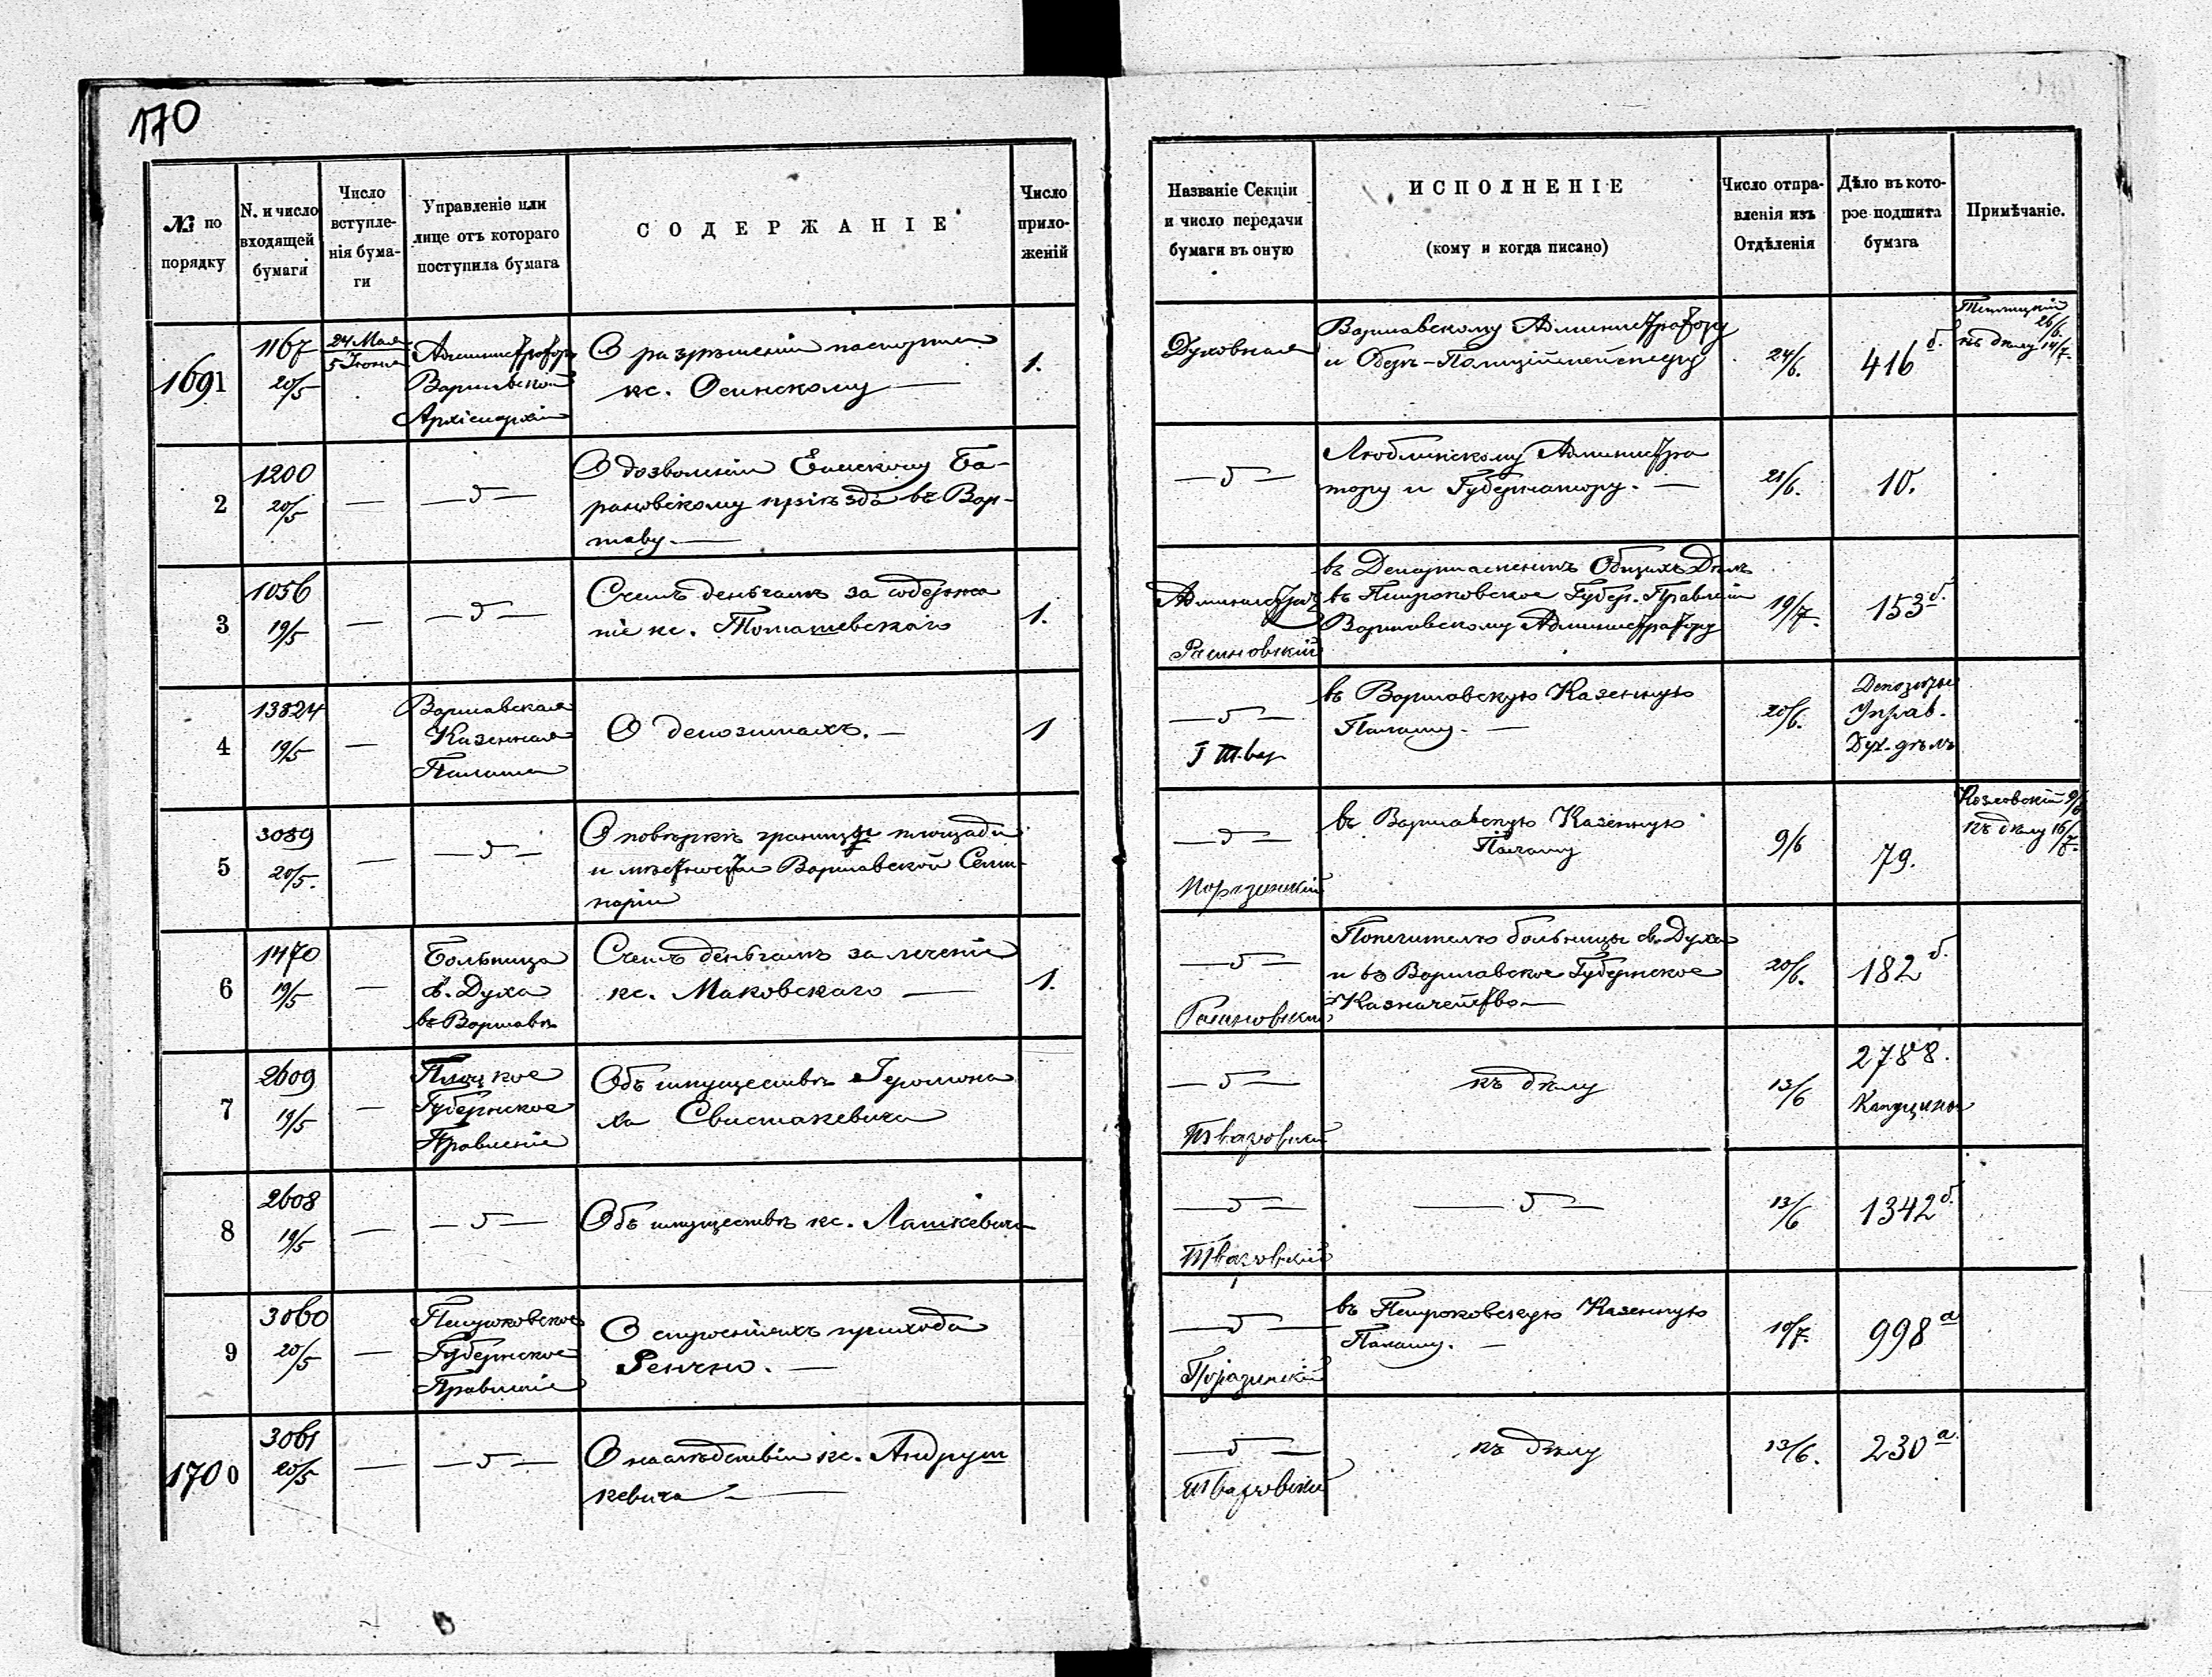 170
№ по порядку
N. и число входящей бумаги
Число вступле-нія бума-ги
Управленіе или лице отъ котораго поступила бумага
СОДЕРЖАНІЕ
Число прило-женій
Названіе Секціи и число передачи бумаги въ оную
ИСПОЛНЕНІЕ
(кому и когда писано)
Число отпра-вленія изъ Отдѣленія
Дѣло въ кото-рое подшита бумага
Примѣчаніе.
1691
1167
20/5
24 Мая
5 Іюня
Администраторъ
Варшавской
Архіепархіи
О разрѣшеніи паспорта
кс. Осинскому —
1.
Духовная
Варшавскому Администратору
и Оберъ-Полиціймейстеру
24/6.
416 б.
26/6.
къ дѣлу 14/7.
2
1200
20/5
—
— 5 —
О дозволеніи Епископу Ба-
рановскому пріѣзда въ Вар-
шаву. —
— 5 —
Люблинскому Администра
тору и Губернатору. —
21/6.
10.
3
1056
19/5
—
— 5 —
Счетъ деньгамъ за содержа
ніе кс. Томашевскаго
1.
въ Департаментъ Общихъ Дѣлъ
въ Петроковское Губер. Правленіе
Варшавскому Администратору
19/7.
153 б.
4
13824
19/5
—
Варшавская
Казенная
Палата
О депозитахъ. —
1
— 5 —
въ Варшавскую Казенную
Палату. —
20/6.
Депозиты
Управ.
Дух. дѣлъ
5
3089
20/5.
—
— 5 —
О повѣркѣ границы площади
и мѣстности Варшавской Семи-
наріи
— 5 —
въ Варшавскую Казенную
Палату
9/6
79.
Козловскій 9/6
къ дѣлу 16/7.
6
1470
19/5
—
Больница
св. Духа
въ Варшавѣ
Счетъ деньгамъ за леченіе
кс. Маковскаго —
1.
— 5 —
Попечителю больницы св. Духа
и въ Варшавское Губернское
Казначейство —
20/6.
182 б.
7
2609
19/5
—
Плоцкое
Губернское
Правленіе
Объ имуществѣ Іеромона
ха Свистакевича
— 5 —
Тваровскій
къ дѣлу
13/6
2788.
Капуцины
8
2608
19/5
—
— 5 —
Объ имуществѣ кс. Лашкевича
— 5 —
Тваровскій
— 5 —
13/6
1342 б.
9
3060
20/5
—
Петроковское
Губернское
Правленіе
О строеніяхъ прихода
— 5 —
въ Петроковскую Казенную
Палату. —
10/7.
998 а
1700
3061
20/5
—
— 5 —
О наслѣдствѣ кс. Андруш
кевича —
— 5 —
Тваровскій
къ дѣлу
13/6.
230 а.